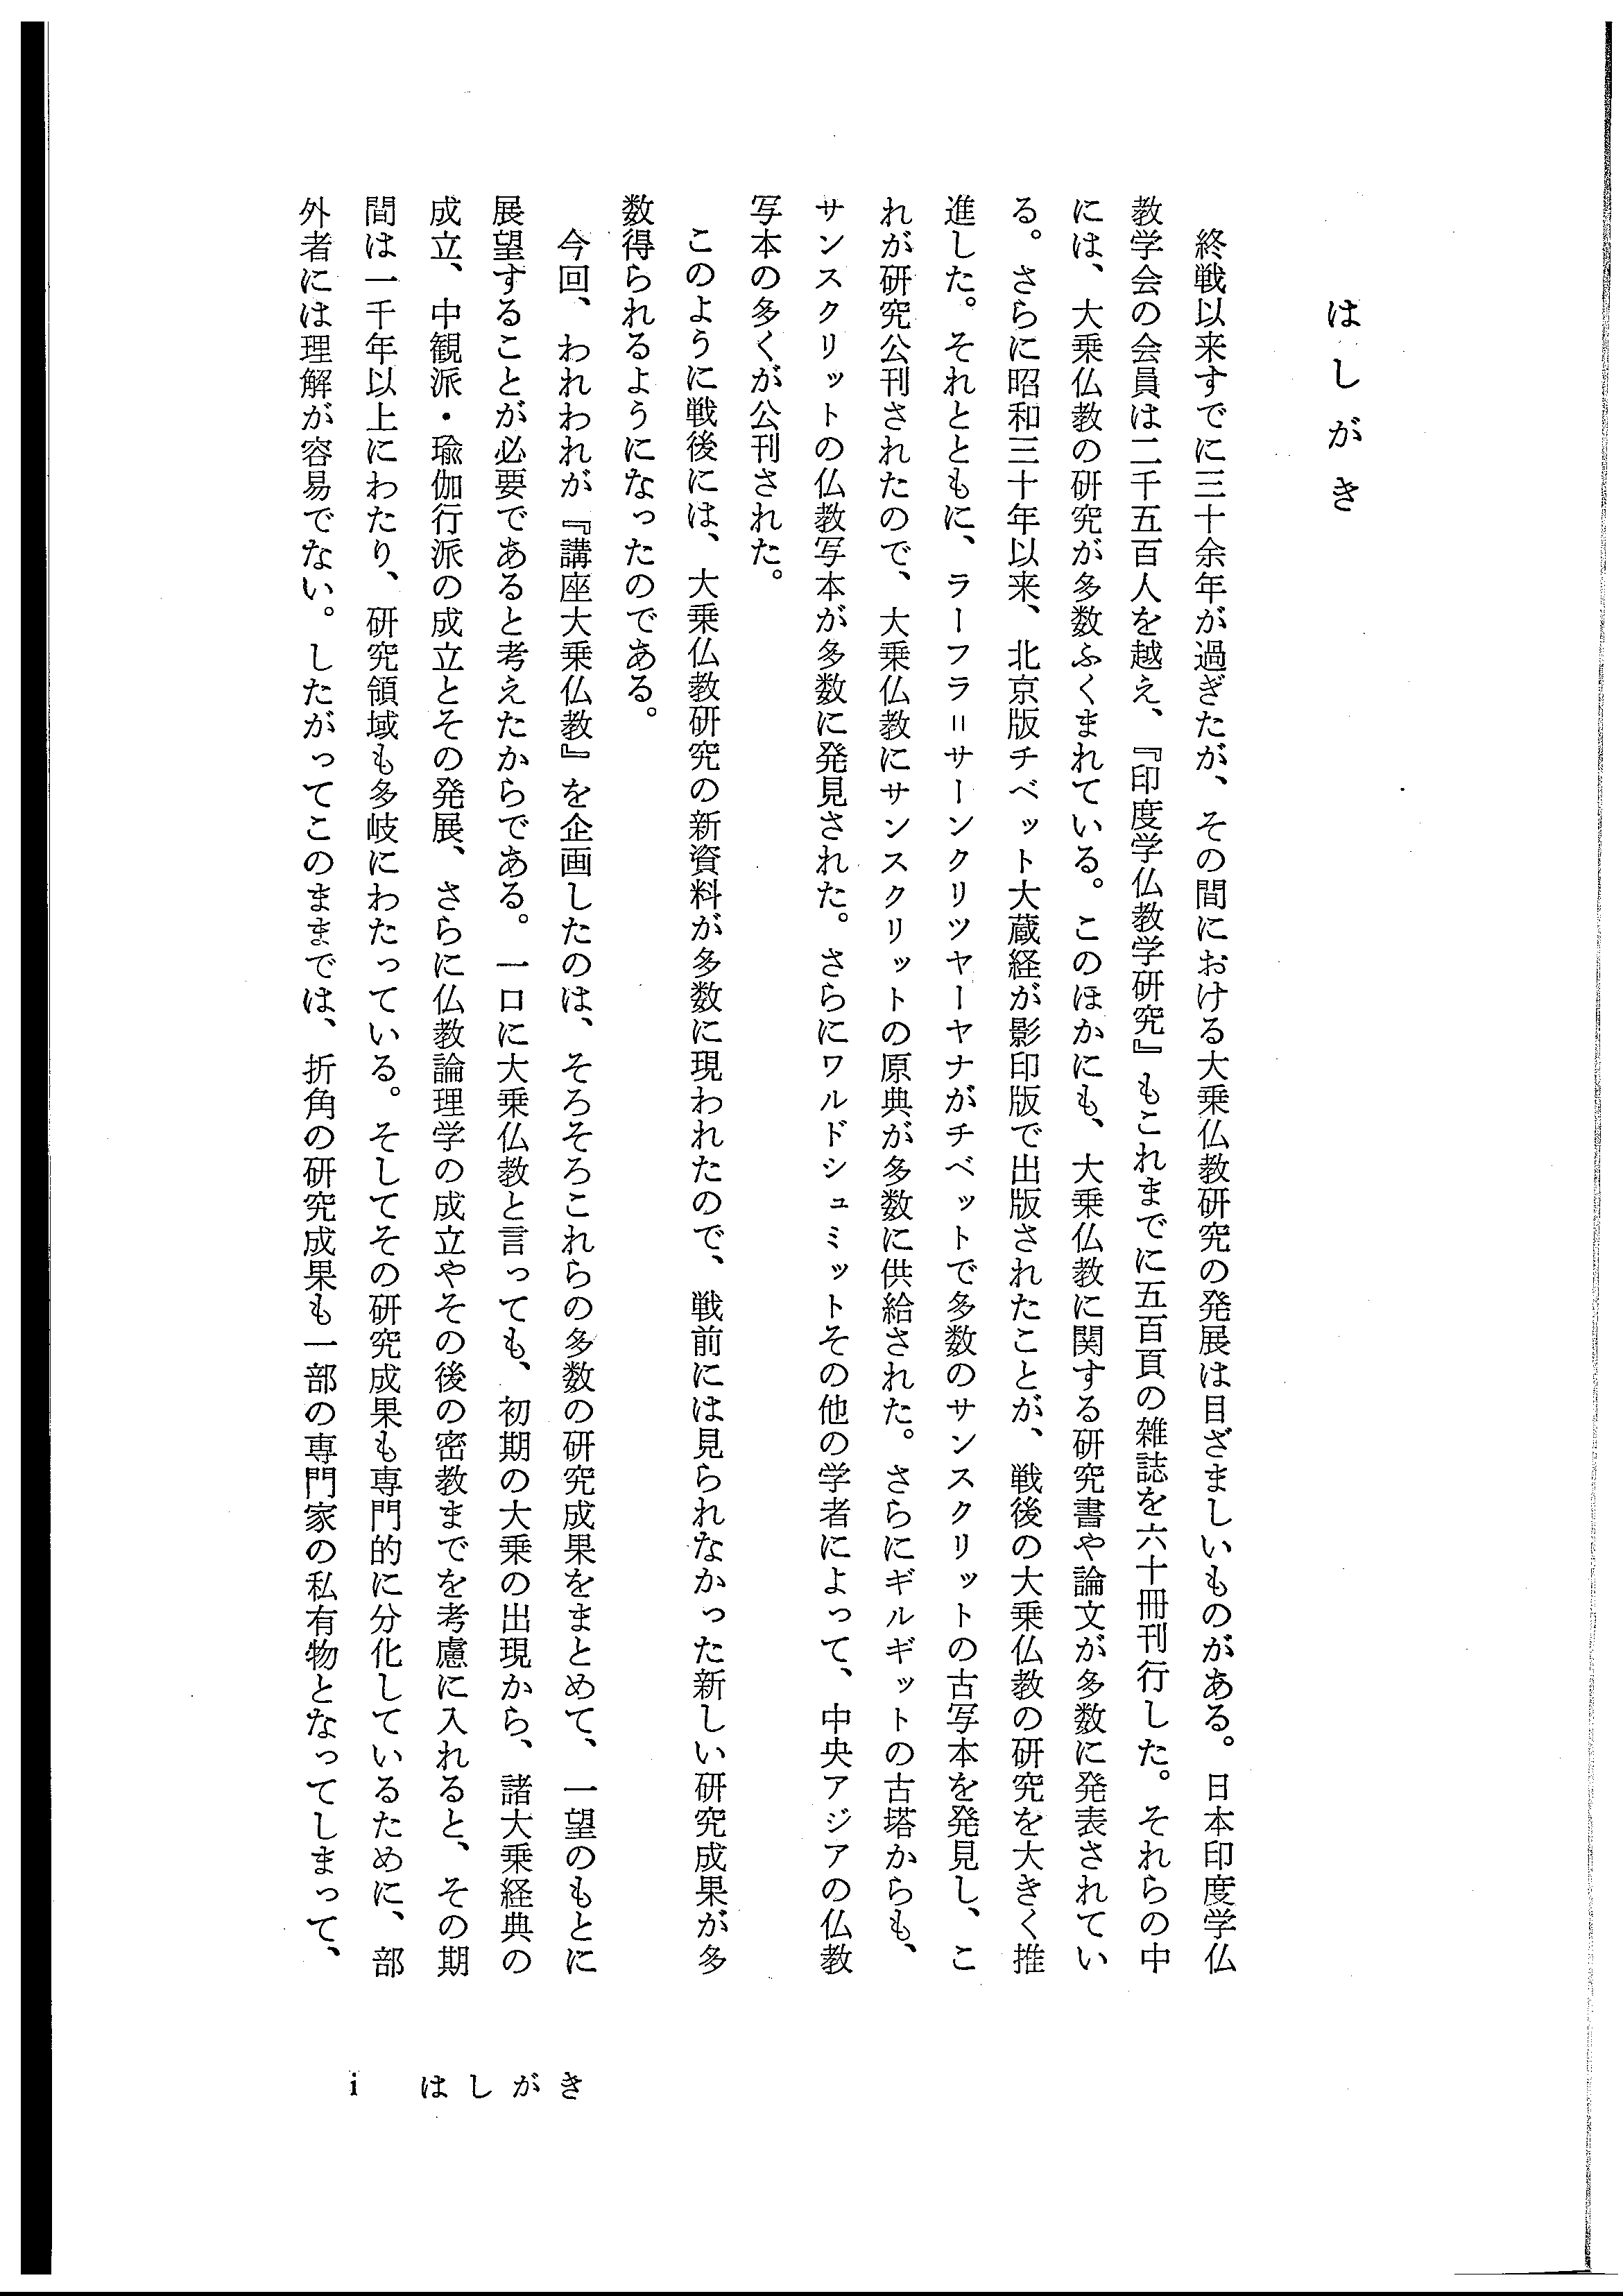 はしがき
終戦以来すでに三十余年が過ぎたが、その間における大乗仏教研究の発展は目ざましいものがある。日本印度学仏
教学会の会員は二千五百人を越え、『印度学仏教学研究』もこれまでに五百頁の雑誌を六十冊刊行した。それらの中
には、大乗仏教の研究が多数ふくまれている。このほかにも、大乗仏教に関する研究書や論文が多数に発表されてい
る。さらに昭和三十年以来、北京版チベット大蔵経が影印版で出版されたことが、戦後の大乗仏教の研究を大きく推
進した。それとともに、ラーフラ＝サーンクリツヤーヤナがチベットで多数のサンスクリットの古写本を発見し、こ
れが研究公刊されたので、大乗仏教にサンスクリットの原典が多数に供給された。さらにギルギットの古塔からも、
サンスクリットの仏教写本が多数に発見された。さらにワルドシュミットその他の学者によって、中央アジアの仏教
写本の多くが公刊された。
このように戦後には、大乗仏教研究の新資料が多数に現われたので、戦前には見られなかった新しい研究成果が多
数得られるようになったのである。
今回、われわれが『講座大乗仏教』を企画したのは、そろそろこれらの多数の研究成果をまとめて、一望のもとに
展望することが必要であると考えたからである。一口に大乗仏教と言っても、初期の大乗の出現から、諸大乗経典の
成立、中観派・瑜伽行派の成立とその発展、さらに仏教論理学の成立やその後の密教までを考慮に入れると、その期
間は一千年以上にわたり、研究領域も多岐にわたっている。そしてその研究成果も専門的に分化しているために、部
外者には理解が容易でない。したがってこのままでは、折角の研究成果も一部の専門家の私有物となってしまって、
i はしがき